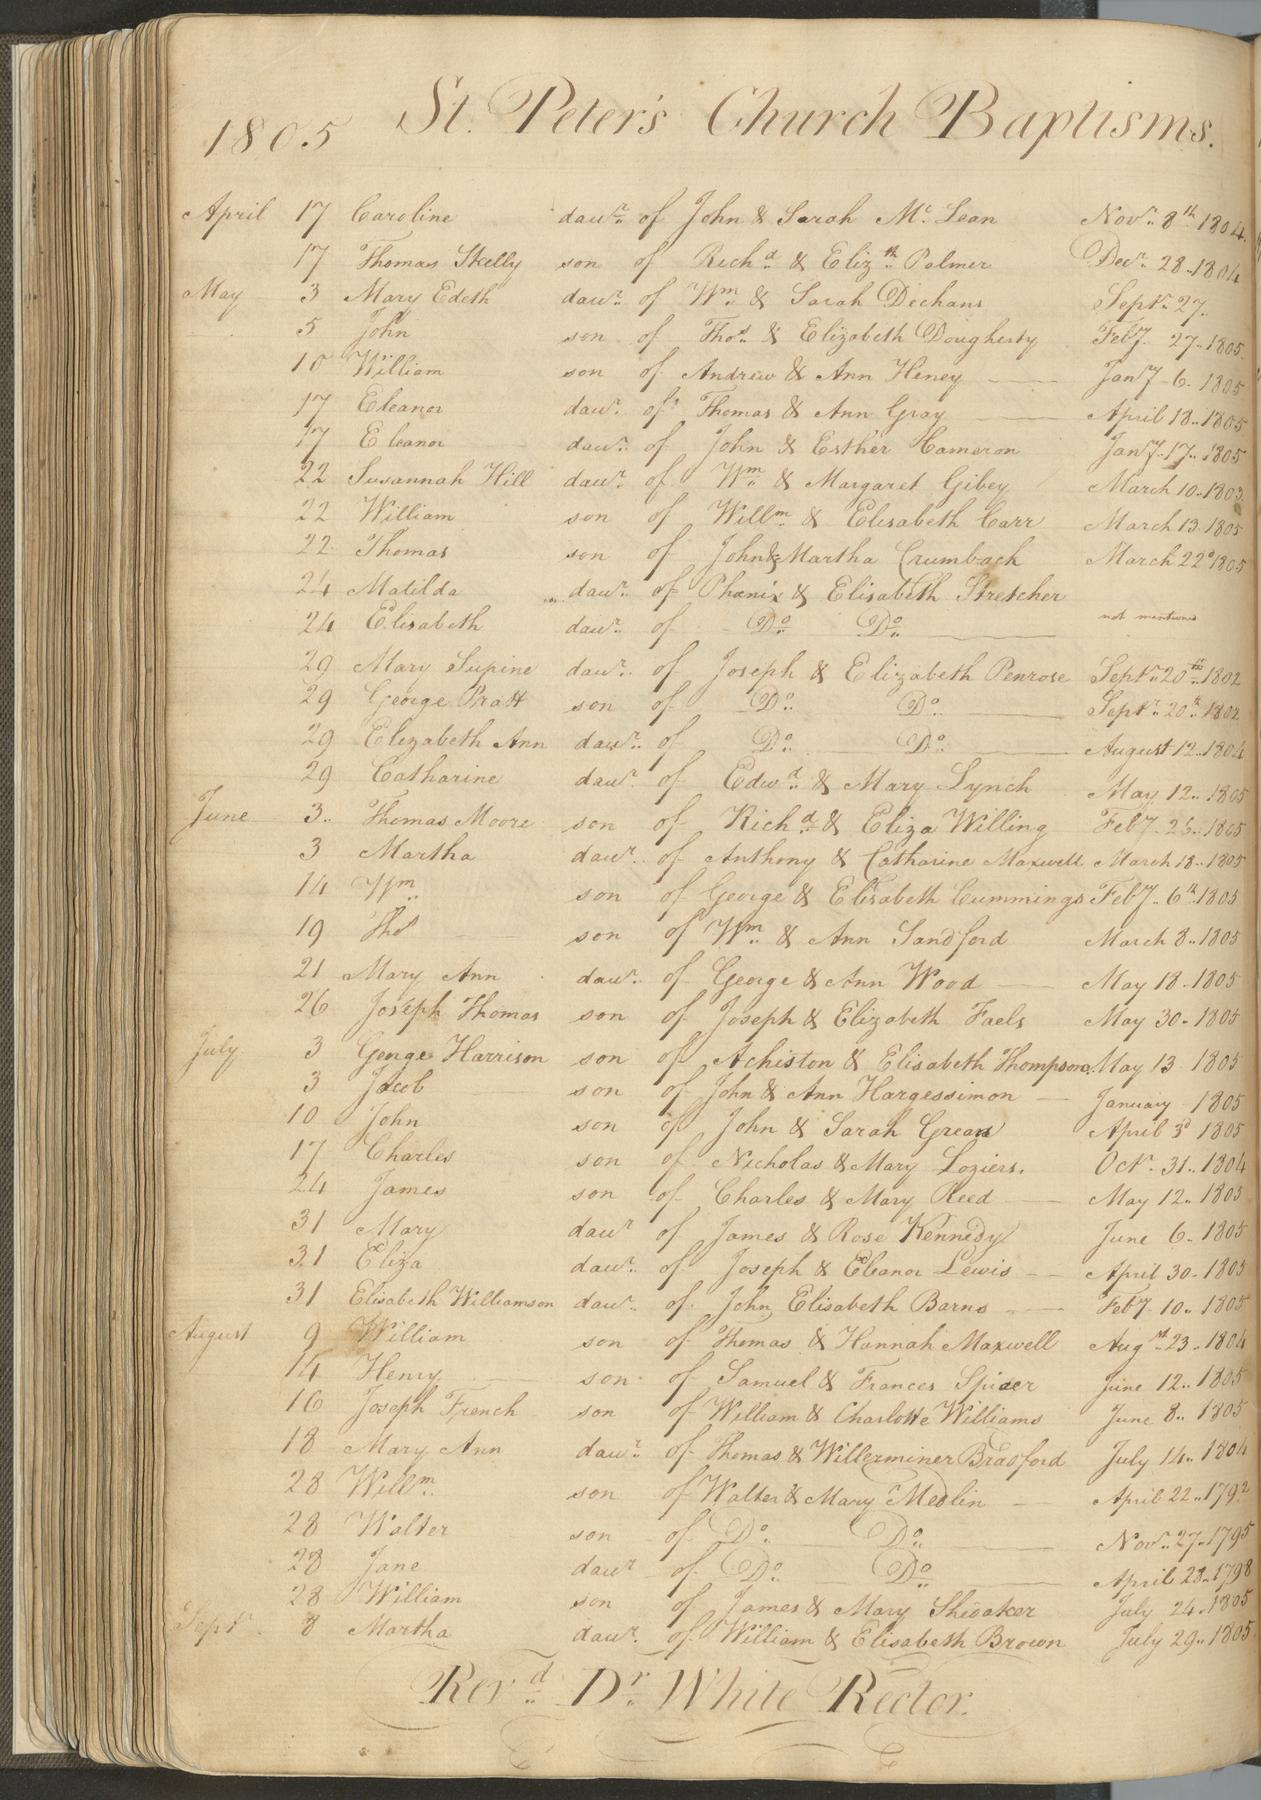 1805 St. Peter's Church Baptisms.
April 17 Caroline dawr. of John & Sarah Mc. Lean Novr. 8th 1804.
17 Thomas Skelly son of Richd. & Elizth. Palmer Decr. 28. 1804
May 3 Mary Edeth dawr. of Wm. & Sarah Dechans Septr. 27..
5 John son of Thos. & Elizabeth Dougherty Feby. 27.. 1805.
10 William son of Andrew & Ann Heney Jany 6. 1805
17 Eleanor dawr. of Thomas & Ann Gray April 18.. 1805.
17 Eleanor dawr. of John & Esther Cameron Jany. 17.. 1805
22 Susannah Hill dawr. of Wm. & Margaret Gibey March 10.. 1803.
22 William son of Willm. & Elisabeth Carr March 13. 1805
22 Thomas son of John & Martha Crumbach March 22d 1805
24 Matilda dawr. of Phœnix & Elisabeth Stretcher
24 Elisabeth dawr. of Do. Do. not mentioned
29 Mary Supine dawr. of Joseph & Elizabeth Penrose Septr. 20th. 1802
29 George Pratt son of Do. Do. Septr. 20th. 1802
29 Elizabeth Ann dawr. of Do. Do. August 12.. 1804
29 Catharine dawr. of Edwd. & Mary Lynch May 12.. 1805
June 3.. Thomas Moore son of Richd. & Eliza Willing Feby. 26.. 1805
3 Martha dawr. of Anthony & Catharine Maxwell March 18.. 1805
14 Wm. son of George & Elisabeth Cummings Feby.. 6th. 1805
19 Thos son of Wm. & Ann Sandford March 8.. 1805
21 Mary Ann dawr. of George & Ann Wood May 18.. 1805
26 Joseph Thomas son of Joseph & Elizabeth Faels May 30. 1805
July 3 George Harrison son of Achiston & Elisabeth Thompson. May 13 1805
3 Jacob son of John & Ann Hargessimon January 1805
10 John son of John & Sarah Grean April 3d 1805
17 Charles son of Nicholas & Mary Loziers. Octr. 31.. 1804
24 James son of Charles & Mary Reed May 12.. 1805
31 Mary dawr of James & Rose Kennedy June 6. 1805
31 Eliza dawr. of Joseph & Eleanor Lewis April 30. 1805
31 Elisabeth Williamson dawr. of John, Elisabeth Barns Feby. 10.. 1805
August 9 William son of Thomas & Hannah Maxwell Augst. 23.. 1804
14 Henry son of Samuel & Frances Spicer June 12.. 1805
16 Joseph French son of William & Charlotte Williams June 8.. 1805
18 Mary Ann dawr. of Thomas & Willerminer Bradford July 14.. 1804
28 Willm. son of Walter & Mary Medlin April 22.. 1792
28 Walter son of Do. Do. Novr. 27. 1795
28 Jane dawr of Do. Do. April 28. 1798
28 William son of James & Mary Shivaker July 24. 1805
Septr. 8 Martha dawr. of William & Elisabeth Brown July 29.. 1805
Revd. Dr. White Rector.